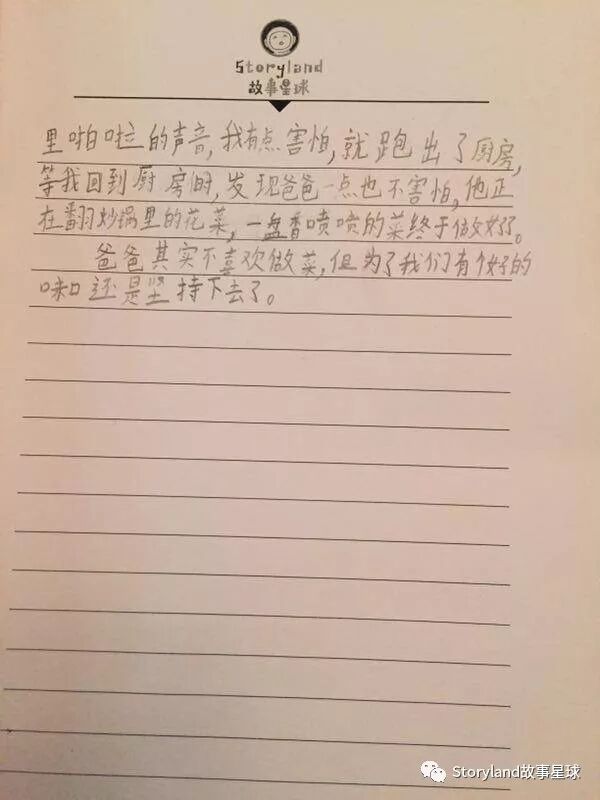 Storyland
故事星球
里啪啦的声音,我有点害怕,就跑出了厨房,
等我回到厨房时,发现爸爸一点也不害怕,他正
在翻炒锅里的花菜,一盘香喷喷的菜终于做好了。
爸爸其实不喜欢做菜,但为了我们有个好的
味口还是坚持下去了。
Storyland故事星球